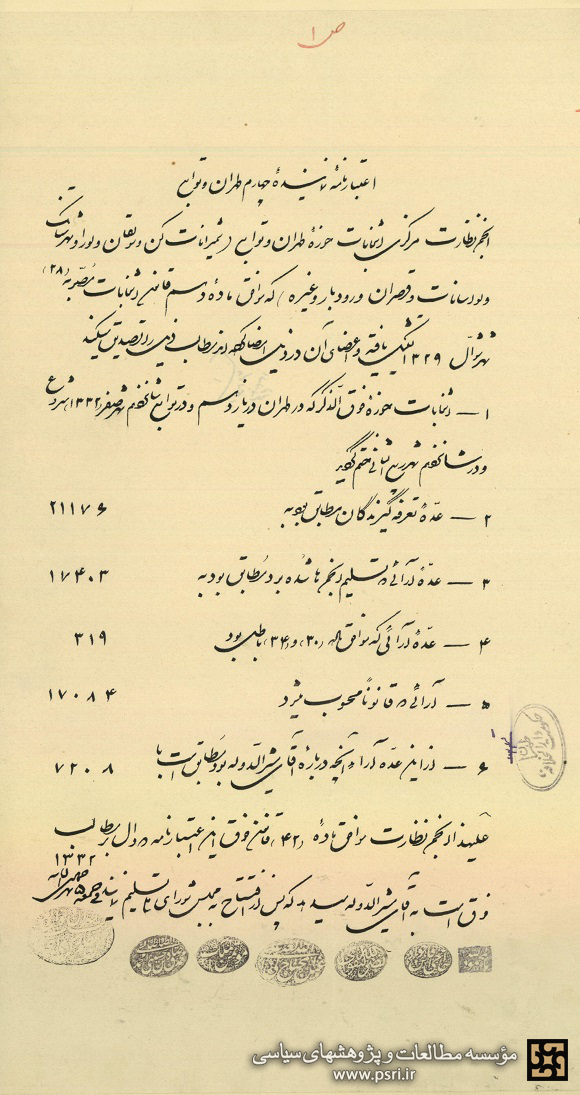 ص ۱
اعتبارنامه نماینده چهارم طهران و توابع
انجمن نظارت مرکزی انتخابات حوزهٔ طهران و توابع (شمیرانات کن و سولقان و لورا و شهرستانک
و لواسانات و قصران و رودبار و غیره) که موافق مادهٔ دهم قانون انتخابات مصوبه (۲۸)
شهر شوال ۱۳۲۹ تشکیل یافته و اعضای آن در ذیل امضا کرده‌اند مطالب ذیل را تصدیق میکند
۱ — انتخابات حوزهٔ فوق الذکر که در طهران در یازدهم و در توابع شانزدهم شهر صفر ۱۳۳۲ شروع
و در شانزدهم شهر ربیع الثانی ختم گردید
۲ — عدهٔ تعرفه گیرندگان مطابق بود به ۲۱۱۷۶
۳ — عدهٔ آرائی که تسلیم انجمن ها شده بود مطابق بود به ۱۷۴۰۳
۴ — عدهٔ آرائی که موافق مادهٔ (۳۰) و (۳۴) باطل بود ۳۱۹
۵ — آرائی که قانوناً محسوب میشود ۱۷۰۸۴
۶ — از این عدهٔ آراء آنچه دربارهٔ آقای مشیرالدوله بود مطابق است با ۷۲۰۸
علیهذا انجمن نظارت موافق مادهٔ (۴۲) قانون فوق این اعتبارنامه که دال بر مطالب
فوق است به آقای مشیرالدوله میدهد که پس از افتتاح به مجلس شورای ملی تسلیم نمایند فی جمعه ۵ شهر
۱۳۳۲
مؤسسه مطالعات و پژوهشهای سیاسی
www.psri.ir